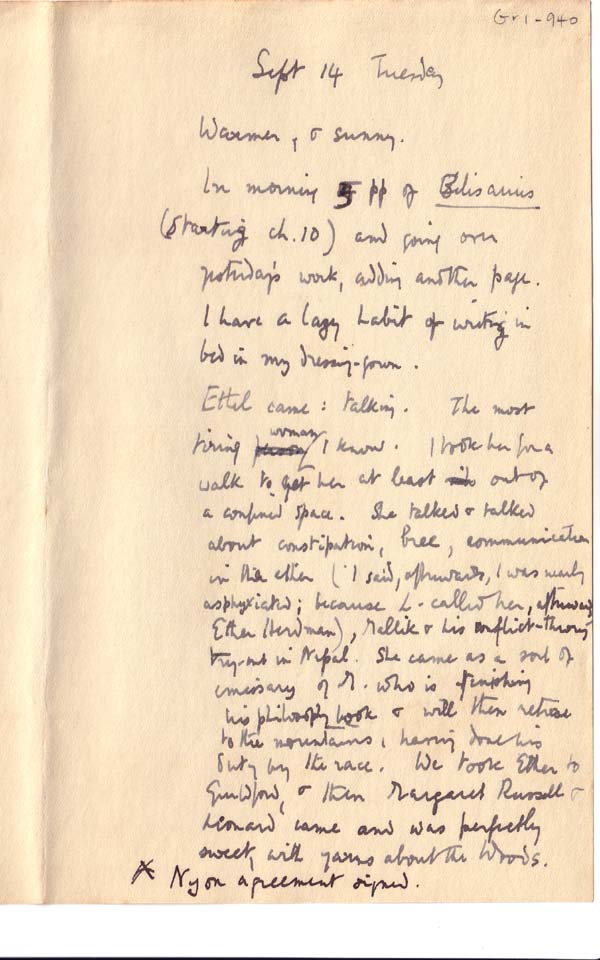 Gr1-940
Sept 14 Tuesday
Warmer, & sunny.
In morning 5 pp of Belisarius
(starting ch.10) and going over
yesterday's work, adding another page.
I have a lazy habit of writing in
bed in my dressing-gown.
Ethel came: talking. The most
woman
tiring person I know. I took her for a
walk to get her at least out of
a confined space. She talked & talked
about constipation, communication
in the ether (I said, afterwards, I was nearly
asphyxiated; because L. called her, afterwards
Ether Herdman), Mallik & his conflict-theory
try-out in Nepal. She came as a sort of
emissary of M. who is finishing
his philosophy book & will then retire
to the mountains, having done his
duty by the race. We took Ether to
Guildford, & then Margaret Russell &
Leonard came and was perfectly
sweet, with yarns about the Woods.
X Nyon agreement signed.